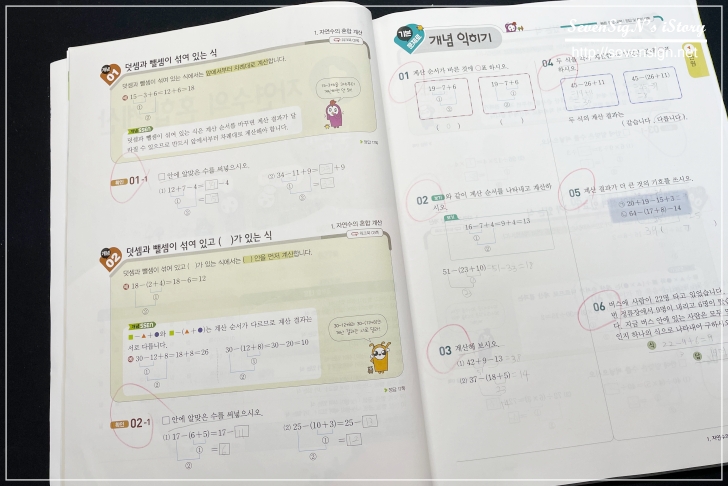 1. 자연수의 혼합 계산
개념 01
덧셈과 뺄셈이 섞여 있는 식
덧셈과 뺄셈이 섞여 있는 식에서는 앞에서부터 차례대로 계산합니다.
15-3+6=12+6=18
①
②
덧셈과 뺄셈이 섞여 있는 식은 계산 순서를 바꾸면 계산 결과가 달
라질 수 있으므로 반드시 앞에서부터 차례대로 계산해야 합니다.
확인 01-1
□ 안에 알맞은 수를 써넣으시오.
(1) 12+7-4=□-4
①
=□
②
(2) 34-11+9=□+9
①
=□
②
1. 자연수의 혼합 계산
개념 02
덧셈과 뺄셈이 섞여 있고 ( )가 있는 식
덧셈과 뺄셈이 섞여 있고 ( )가 있는 식에서는 ( ) 안을 먼저 계산합니다.
18-(2+4)=18-6=12
①
②
■-▲+●와 ■-(▲+●)는 계산 순서가 다르므로 계산 결과는
서로 다릅니다.
30-12+8=18+8=26
①
②
30-(12+8)=30-20=10
①
②
확인 02-1
□ 안에 알맞은 수를 써넣으시오.
(1) 17-(6+5)=17-11
①
=6
②
(2) 25-(10+3)=25-13
①
=12
②
기본 문제로 개념 익히기
01 계산 순서가 바른 것에 ○표 하시오.
19-7+6
①
②
19-7+6
①
②
( ) ( )
02 보기와 같이 계산 순서를 나타내고 계산하
시오.
보기
16-7+4=9+4=13
①
②
51-(23+10)
03 계산해 보시오.
(1) 42+9-13
(2) 37-(18+5)=14
04
45-26+11
45-(26+11)
두 식의 계산 결과는
( 같습니다 , 다릅니다 ).
05 계산 결과가 더 큰 것의 기호를 쓰시오.
㉠ 20+19-15+3
㉡ 64-(17+8)-14
06 버스에 사람이 22명 타고 있었습니다.
SevenSigN's iStory
http://sevensign.net